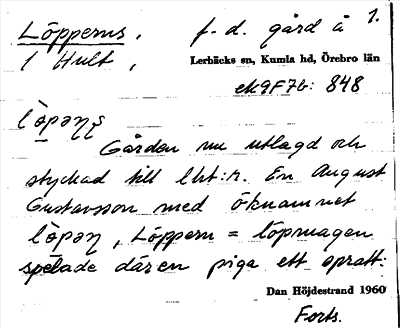 Löpperns, f.d. gård å 1.
1 Hult, Lerbäcks sn, Kumla hd, Örebro län
ek 9F7b: 848
Gården nu utlagd och
styckad till lht:r. En August
Gustavsson med öknamnet
Löppern = löpmagen
spelade där en piga ett spratt.
Dan Höjdestrand 1960
Forts.